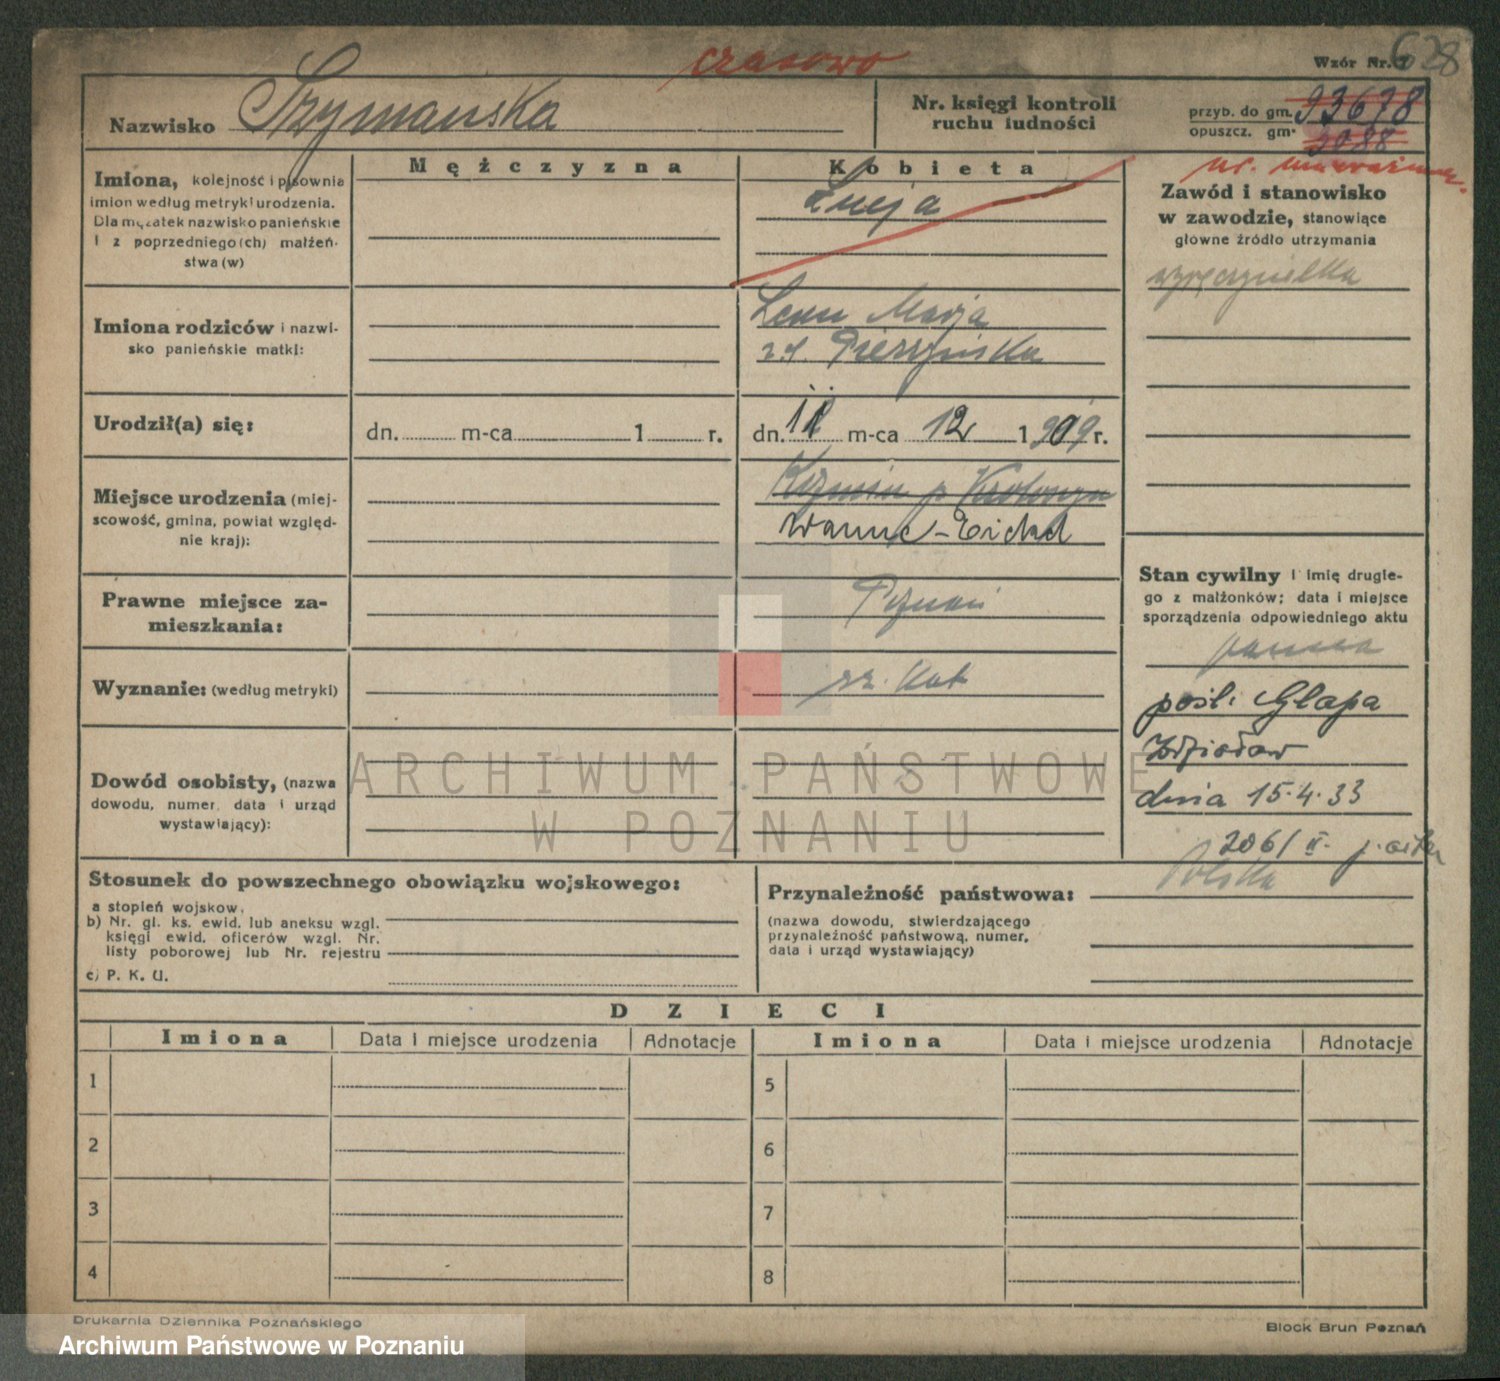 czasowo
Wzór Nr. 1
628
Nazwisko Szymańska
Nr. księgi kontroli
ruchu ludności
przyb. do gm. 93678
opuszcz. gm. 2088
Mężczyzna
Kobieta
Imiona, kolejność i pisownia
imion według metryki urodzenia.
Dla mężatek nazwisko panieńskie
i z poprzedniego(ch) małżeń-
stwa(w)
Łucja
nr.
Zawód i stanowisko
w zawodzie, stanowiące
główne źródło utrzymania
Imiona rodziców i nazwi-
sko panieńskie matki:
Leon Marja
z d.
Urodził(a) się:
dn. m-ca 1 r.
dn. m-ca 12 1909 r.
Miejsce urodzenia (miej-
scowość, gmina, powiat względ-
nie kraj):
Koźmin p Krotoszyn
Wanne-Eickel
Prawne miejsce za-
mieszkania:
Poznań
Wyznanie: (według metryki)
rz. kat
Dowód osobisty, (nazwa
dowodu, numer, data i urząd
wystawiający):
Stan cywilny i imię drugie-
go z małżonków; data i miejsce
sporządzenia odpowiedniego aktu
panna
pośl. Glapa
Zdzisław
dnia 15.4.33
206/II.
Stosunek do powszechnego obowiązku wojskowego:
a stopień wojskow.
b) Nr. gl. ks. ewid. lub aneksu wzgl.
księgi ewid. oficerów wzgl. Nr.
listy poborowej lub Nr. rejestru
c) P. K. U.
Przynależność państwowa: Polska
(nazwa dowodu, stwierdzającego
przynależność państwową, numer,
data i urząd wystawiający)
DZIECI
Imiona Data i miejsce urodzenia Adnotacje Imiona Data i miejsce urodzenia Adnotacje
1 5
2 6
3 7
4 8
Drukarnia Dziennika Poznańskiego
Block Brun Poznań
ARCHIWUM PAŃSTWOWE
W POZNANIU
Archiwum Państwowe w Poznaniu